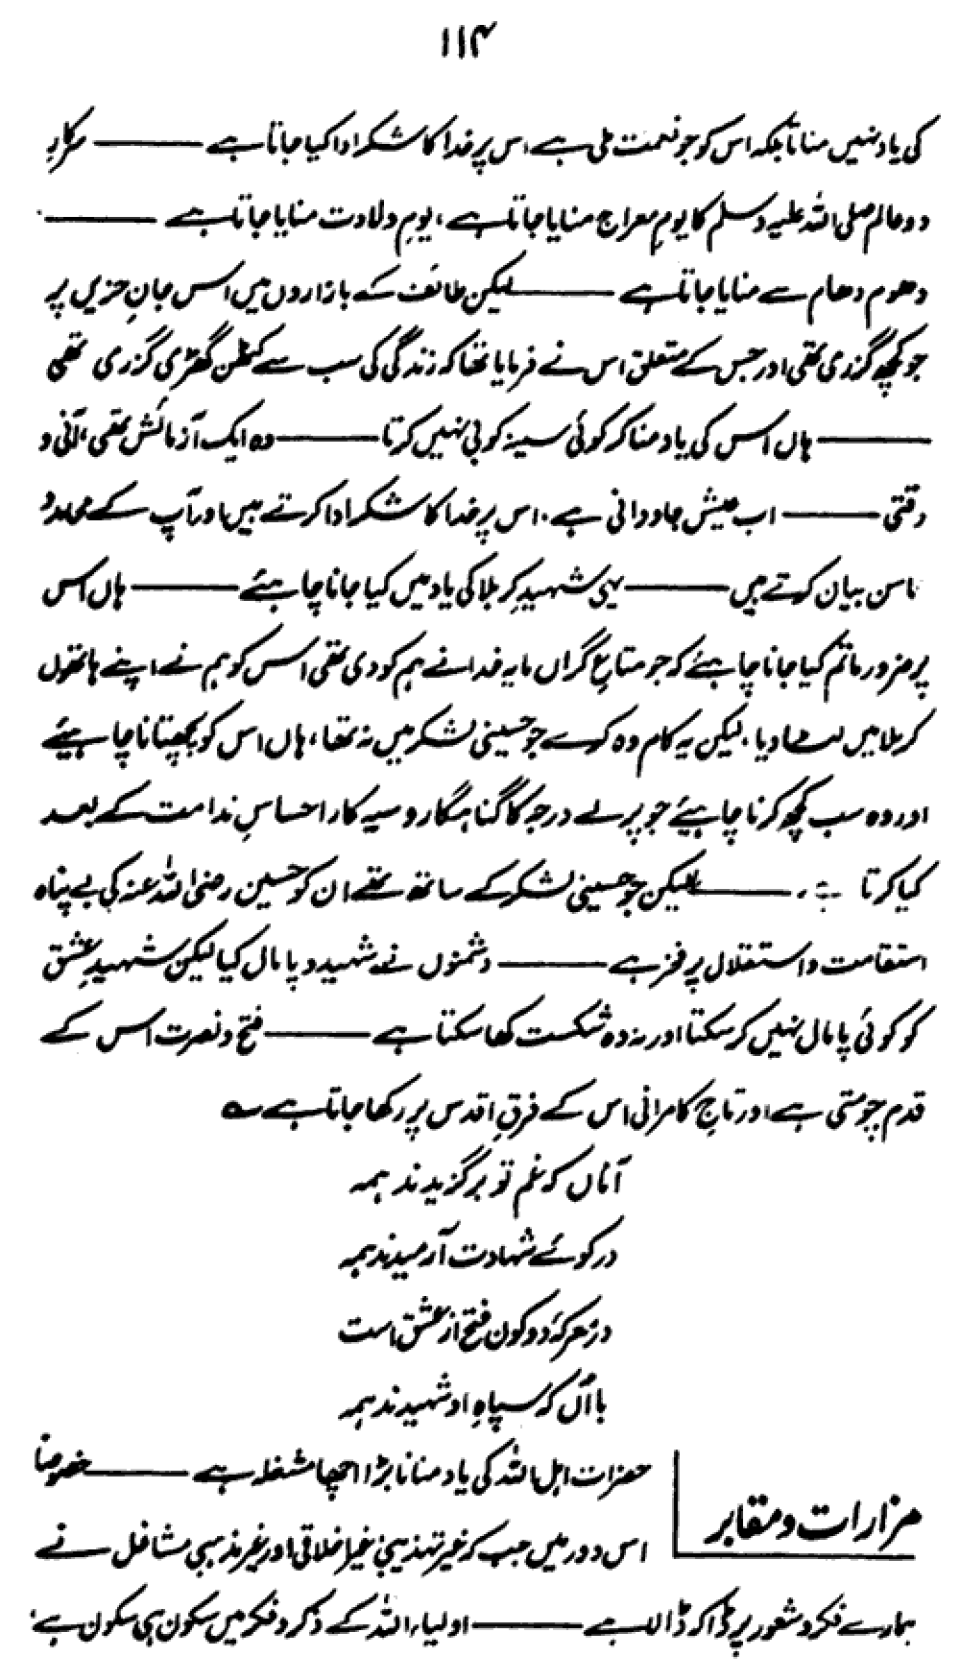 ۱۱۴
کی یاد نہیں مناتا بلکہ اس کو جو نعمت ملی ہے اس پر خدا کا شکر ادا کیا جاتا ہے ——— سرکارِ
دو عالم صلی اللہ علیہ وسلم کا یومِ معراج منایا جاتا ہے ، یومِ ولادت منایا جاتا ہے ———
دھوم دھام سے منایا جاتا ہے ——— لیکن طائف کے بازاروں میں اس جانِ حزیں پر
جو کچھ گزری تھی اور جس کے متعلق اس نے فرمایا تھا کہ زندگی کی سب سے کٹھن گھڑی گزری تھی
——— ہاں اس کی یاد منا کر کوئی سینہ کوبی نہیں کرتا ——— وہ ایک آزمائش تھی ، آنی و
وقتی ——— اب عیش جاودانی ہے ۔ اس پر خدا کا شکر ادا کرتے ہیں اور آپ کے محامد و
محاسن بیان کرتے ہیں ——— یہی شہیدِ کربلا کی یاد میں کیا جانا چاہئے ——— ہاں اس
پر ضرور ماتم کیا جانا چاہئے کہ جو متاعِ گراں مایہ خدا نے ہم کو دی تھی اس کو ہم نے اپنے ہاتھوں
کربلا میں لٹا دیا ، لیکن یہ کام وہ کرے جو حسینی لشکر میں نہ تھا ، ہاں اس کو پچھتانا چاہیئے
اور وہ سب کچھ کرنا چاہیئے جو پرلے درجہ کا گناہگار و سیہ کار احساسِ ندامت کے بعد
کیا کرتا ہے ۔ ——— لیکن جو حسینی لشکر کے ساتھ تھے ان کو حسین رضی اللہ عنہ کی بے پناہ
استقامت و استقلال پر فخر ہے ——— دشمنوں نے شہید و پامال کیا لیکن شہیدِ عشق
کو کوئی پامال نہیں کر سکتا اور نہ وہ شکست کھا سکتا ہے ——— فتح و نصرت اس کے
قدم چومتی ہے اور تاجِ کامرانی اس کے فرقِ اقدس پر رکھا جاتا ہے ؎
آناں کہ غم تو برگزیدند ہمہ
در کوئے شہادت آرمیدند ہمہ
در معرکۂ دو کون فتح از عشق است
با آں کہ سپاہِ او شہیدند ہمہ
مزارات و مقابر
حضرات اہل اللہ کی یاد منانا بڑا اچھا مشغلہ ہے ——— خصوصاً
اس دور میں جب کہ غیر تہذیبی غیر اخلاقی اور غیر مذہبی مشاغل نے
ہمارے فکر و شعور پر ڈاکہ ڈالا ہے ——— اولیاء اللہ کے ذکر و فکر میں سکون ہی سکون ہے ،